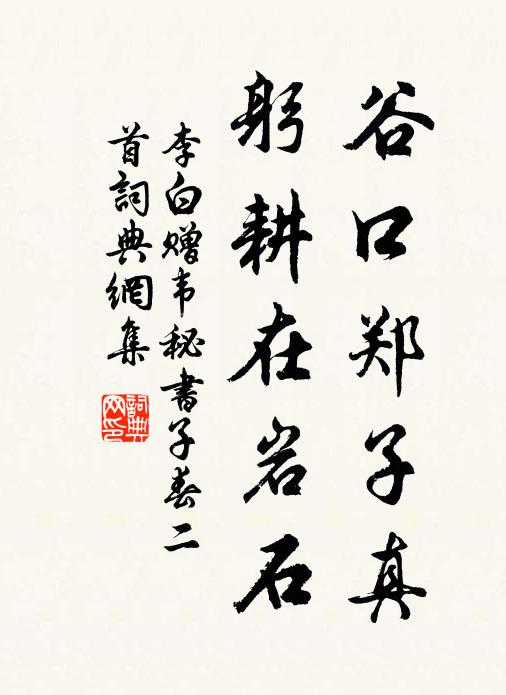 谷口郑子真
躬耕在岩石
李白赠韦秘書子春二
首詞典網集
詞典网印